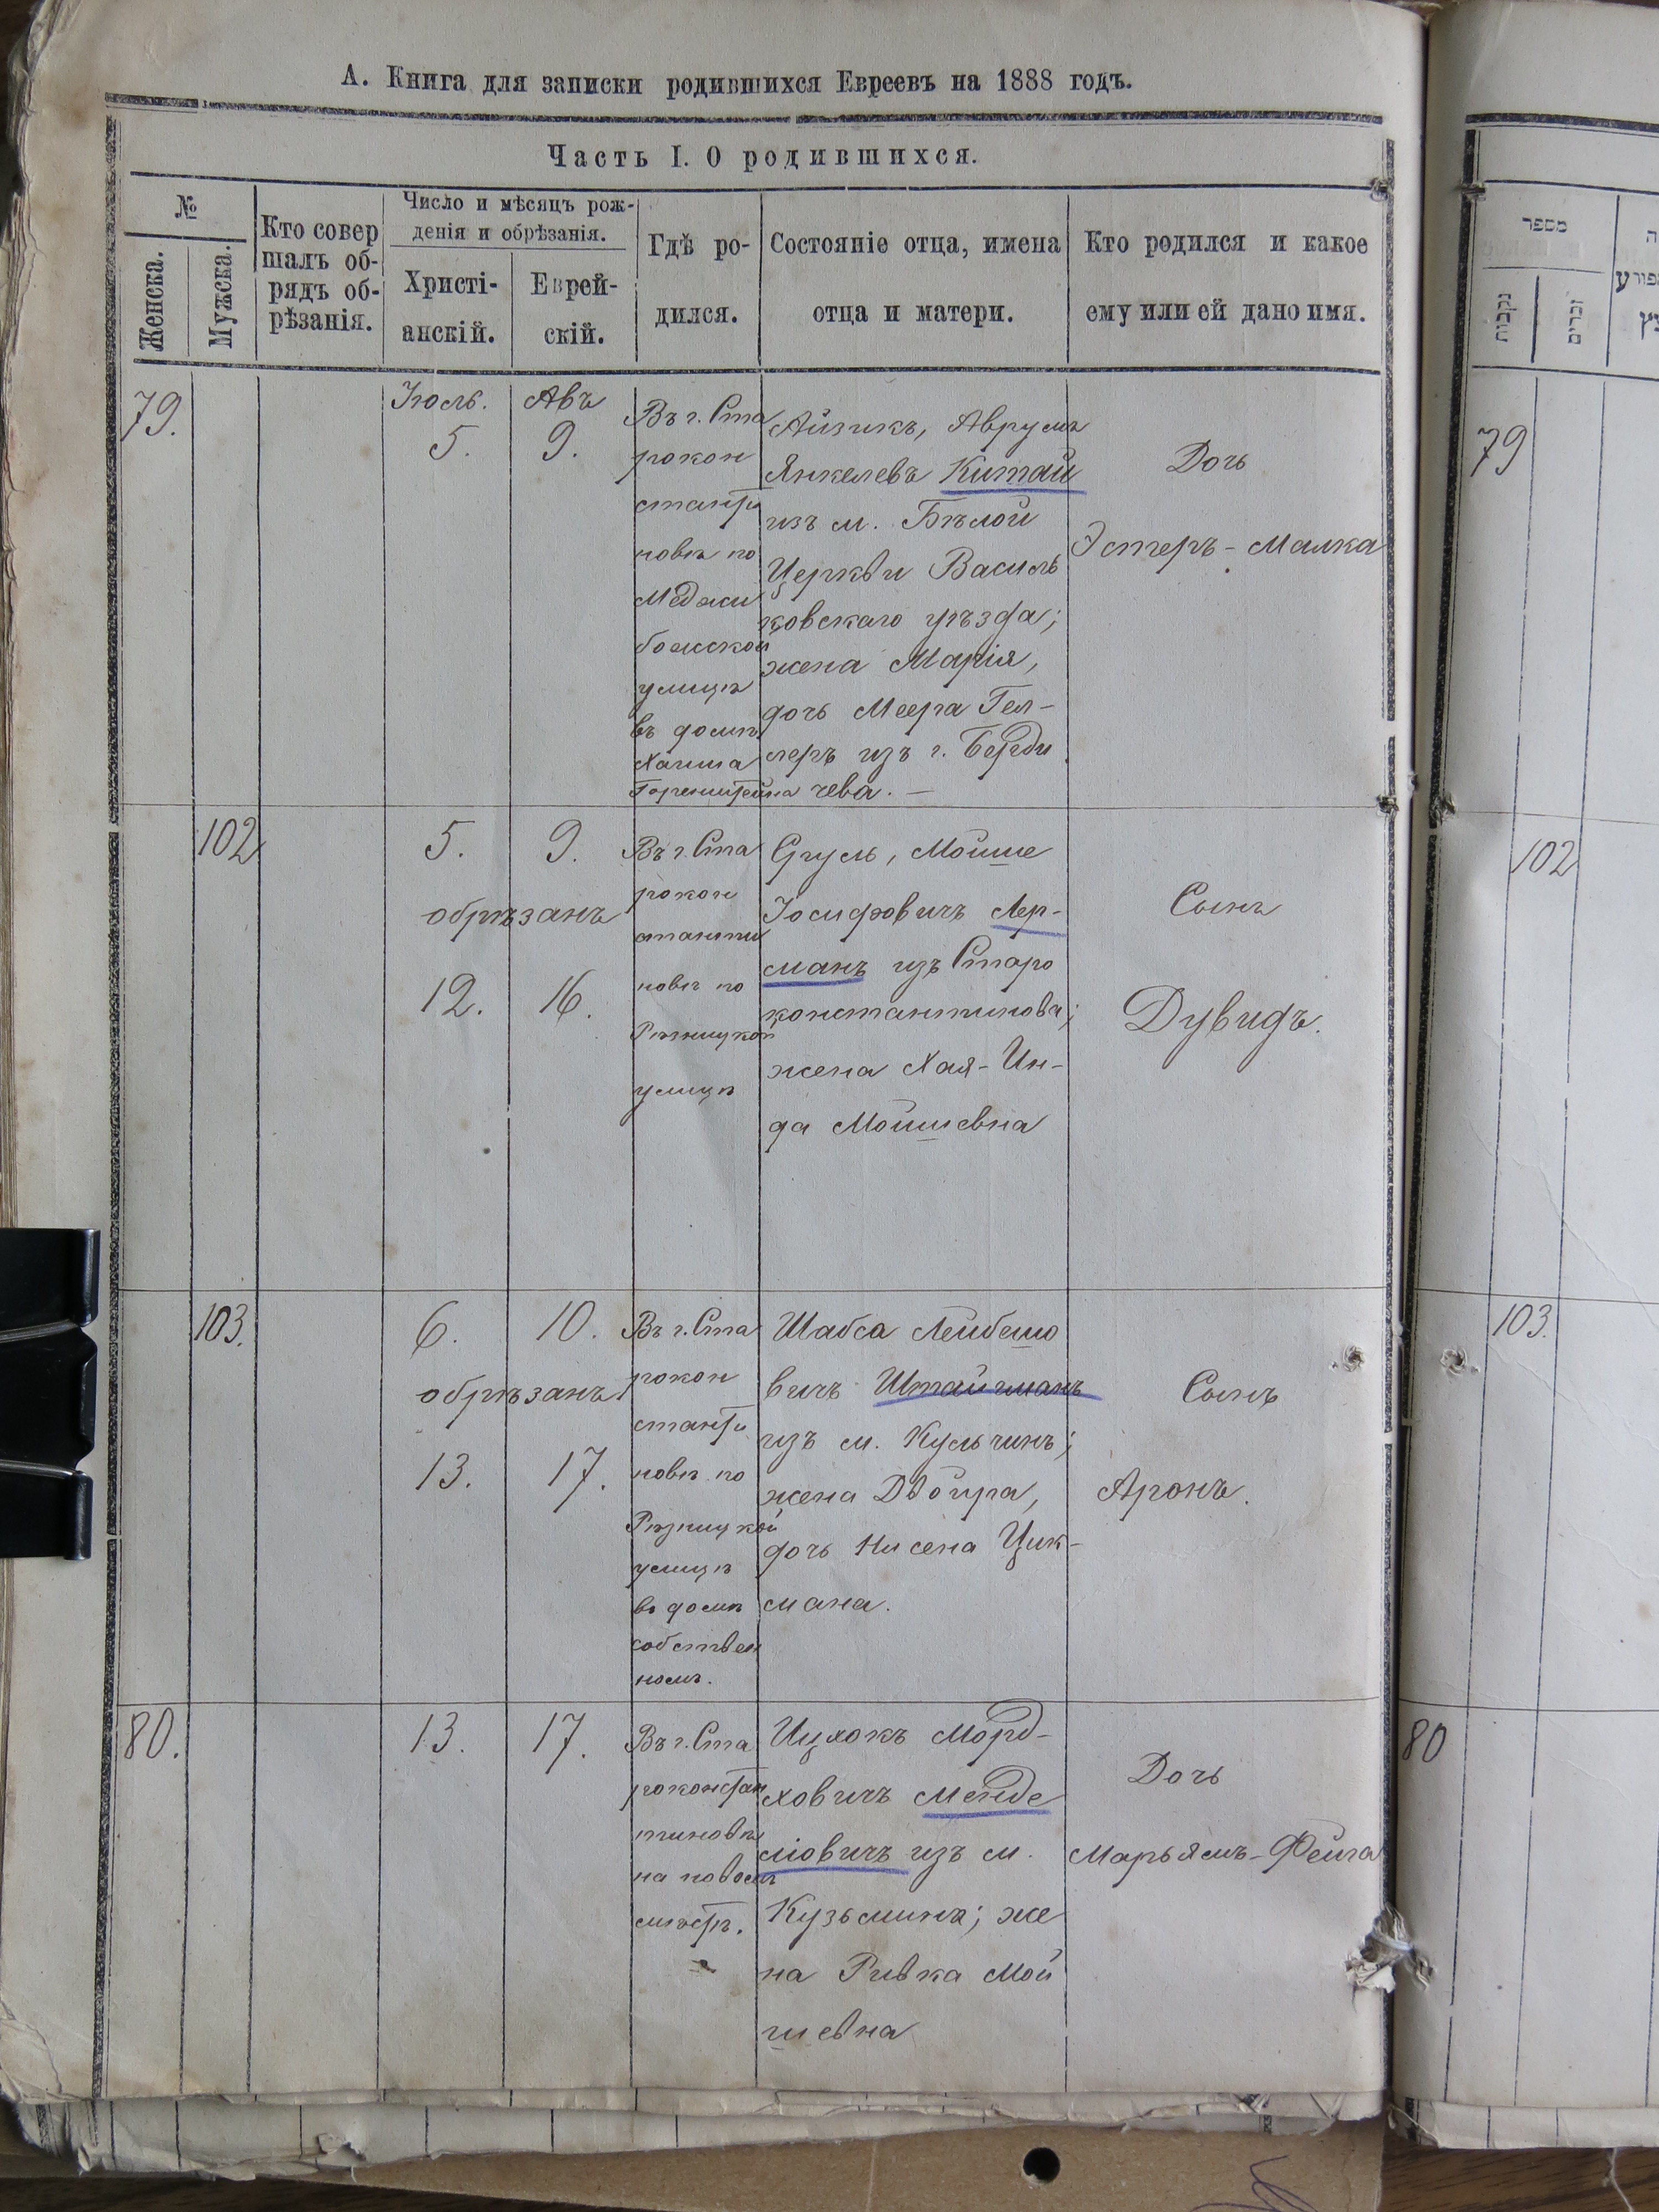 А. Книга для записки родившихся Евреевъ на 1888 годъ.
Часть I. О родившихся.
№
Женска.
Мужска.
Кто совер
шалъ об-
рядъ об-
рѣзанія.
Число и мѣсяцъ рож-
денія и обрѣзанія.
Христі-
анскій.
Еврей-
скій.
Гдѣ ро-
дился.
Состояніе отца, имена
отца и матери.
Кто родился и какое
ему или ей дано имя.
79.
Іюль.
5.
Авъ
9.
Въ г. Ста
рокон
станти
новѣ по
Меджи
божской
улицѣ
въ домѣ
Хаима
Горенштейна
Айзикъ, Аврумъ
Янкелевъ Китай
изъ м. Бѣлой
Церкви Василь
ковскаго уѣзда;
жена Марія,
дочь Меера Гел-
леръ изъ г. Берди
чева. —
Дочь
Эстеръ-Малка
102
5.
9.
обрѣзанъ
12.
16.
Въ г. Ста
рокон
станти
новѣ по
Рѣзницкой
улицѣ
Сруль, Мойше
Іосифовичъ Лер-
манъ изъ Старо
константинова;
жена Хая-Ин-
да Мойшевна
Сынъ
Дувидъ.
103.
6.
10.
обрѣзанъ
13.
17.
Въ г. Ста
рокон
станти
новѣ по
Рѣзницкой
улицѣ
въ домѣ
собствен
номъ.
Шабса Лейбешо
вичъ Штайгманъ
изъ м. Кульчинъ;
жена Двойра,
дочь Нисена Цик-
мана.
Сынъ
Аронъ.
80.
13.
17.
Въ г. Ста
роконстан
тиновѣ
на новомъ
мѣстѣ.
Ицхокъ Морд-
ховичъ Менде
ліовичъ изъ м.
Кузьмина; же
на Ривка Мой
шевна
Дочь
Марьямъ-Фейга
מספר
נקבות
זכרים
79
102
103.
80